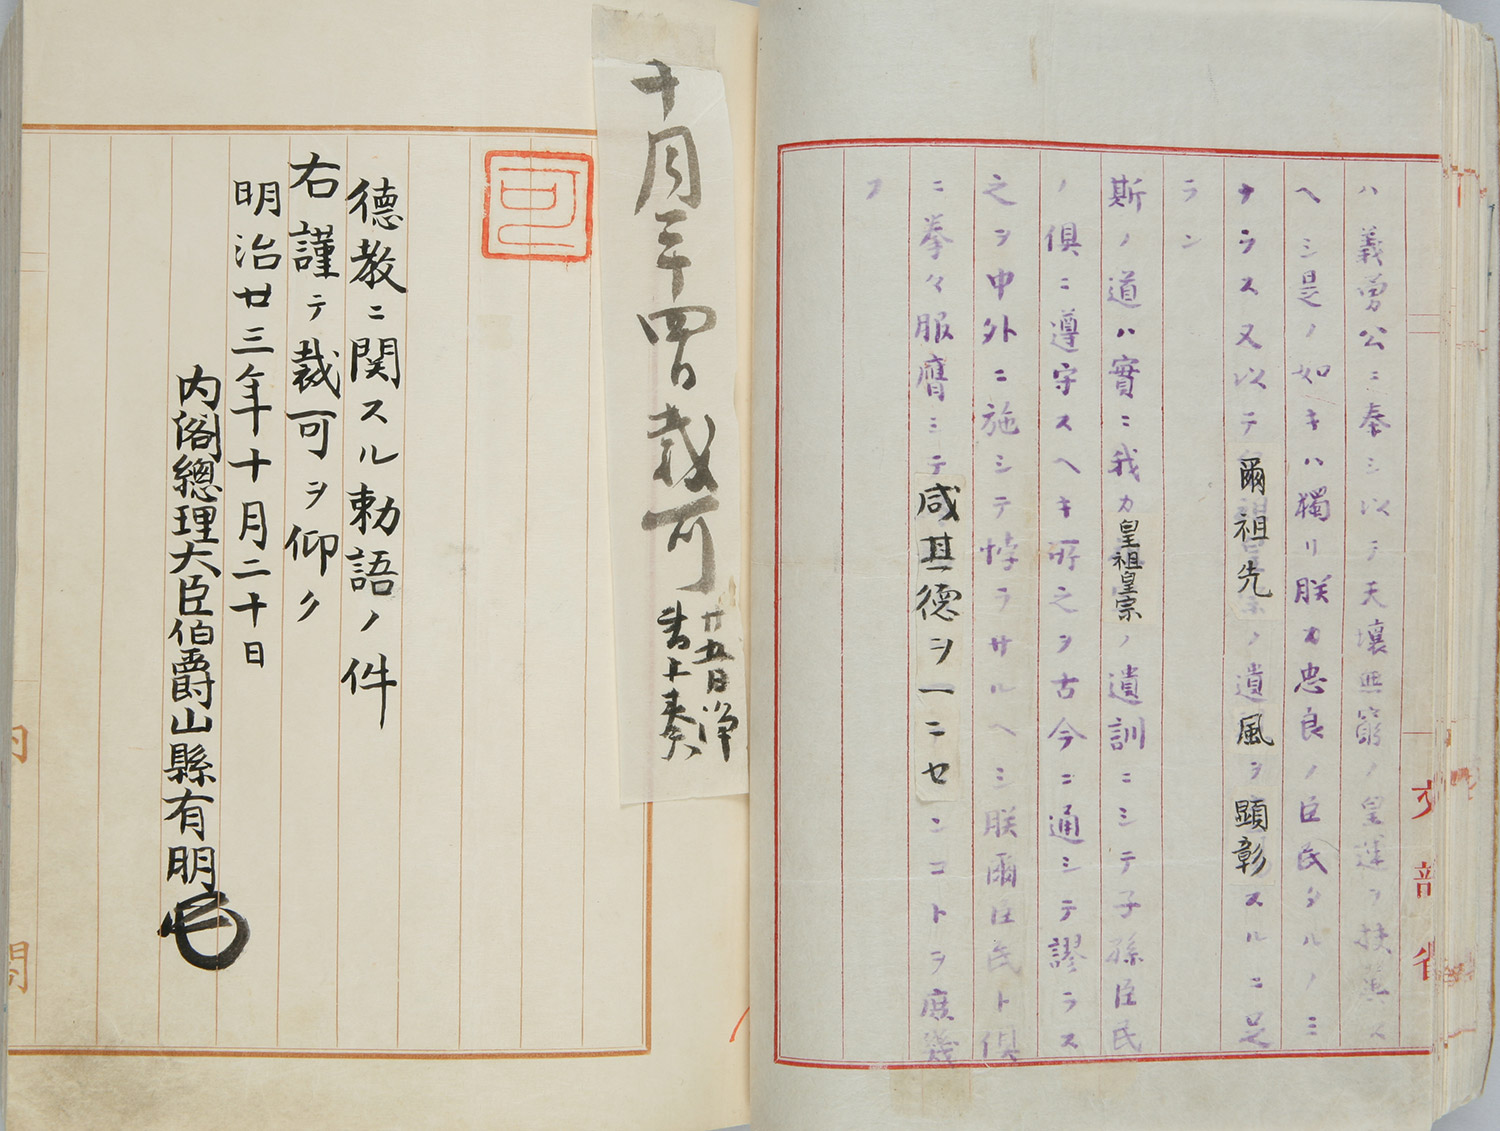 ハ義勇公ニ奉シ以テ天壤無窮ノ皇運ヲ扶翼ス
ヘシ是ノ如キハ獨リ朕カ忠良ノ臣民タルノミ
ナラス又以テ爾祖先ノ遺風ヲ顯彰スルニ足
ラン
斯ノ道ハ實ニ我カ皇祖皇宗ノ遺訓ニシテ子孫臣民
ノ俱ニ遵守スヘキ所之ヲ古今ニ通シテ謬ラス
之ヲ中外ニ施シテ悖ラサルヘシ朕爾臣民ト俱
ニ拳々服膺シテ咸其德ヲ一ニセンコトヲ庶幾
フ
文部省
十月二十四日裁可
廿五日浄
書上奏
可
德教ニ関スル勅語ノ件
右謹テ裁可ヲ仰ク
明治廿三年十月二十日
内閣總理大臣伯爵山縣有朋
内閣